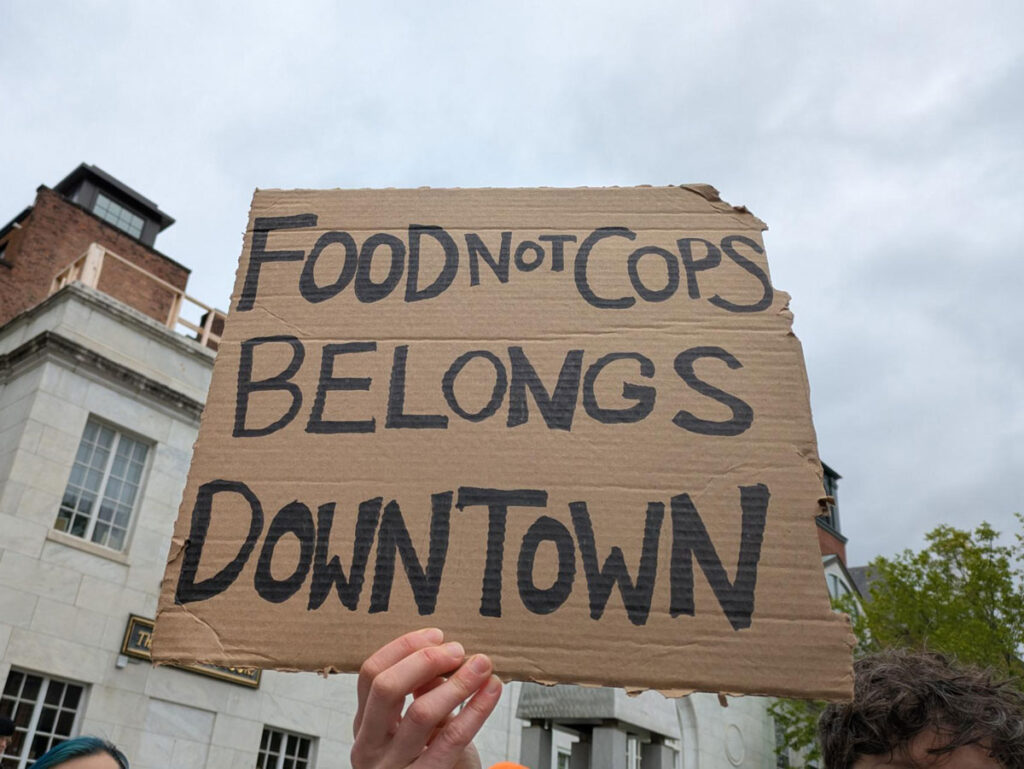 FOOD NOT COPS
BELONGS
DOWNTOWN